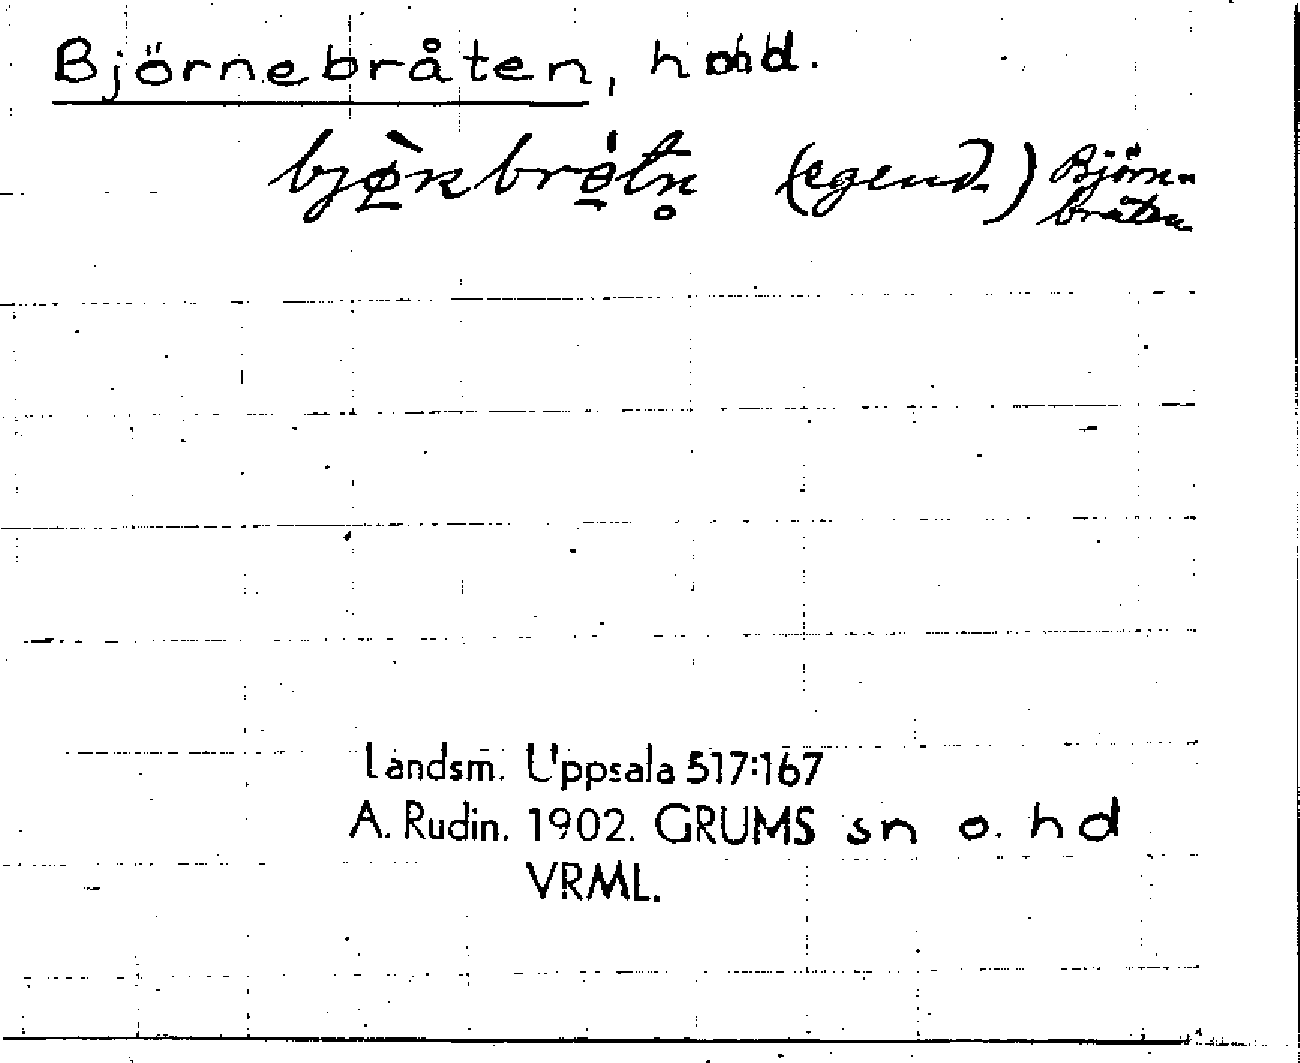 Björnebråten, hmd.
bjø̀nbrötn̥ (egend.) Björn-
bråten
Landsm. Uppsala 517:167
A. Rudin. 1902. GRUMS sn o. hd
VRML.